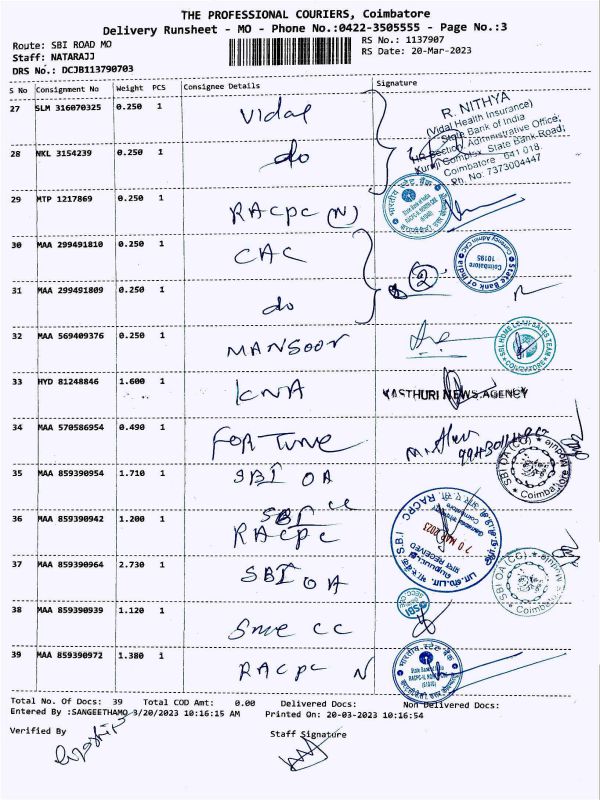 THE PROFESSIONAL COURIERS, Coimbatore
Delivery Runsheet - MO - Phone No.:0422-3505555 - Page No.:3
Route: SBI ROAD MO
RS No.: 1137907
Staff: NATARAJJ
RS Date: 20-Mar-2023
DRS No.: DCJB113790703
S No Consignment No Weight PCS Consignee Details Signature
27 SLM 316070325 0.250 1 Vidal
R. NITHYA
(Vidal Health Insurance)
State Bank of India
HR Section, Administrative Office,
Kuruji Complex, State Bank Road,
Coimbatore - 641 018.
Ph. No: 7373004447
28 NKL 3154239 0.250 1 do
29 MTP 1217869 0.250 1 RACPC (N)
30 MAA 299491810 0.250 1 CAC
State Bank of India
Currency Admin Cell
Coimbatore
10195
31 MAA 299491809 0.250 1 do
2
32 MAA 569409376 0.250 1 MANSOOR
SBI HOME LOAN SALES TEAM
COIMBATORE
33 HYD 81248846 1.600 1 KNA
KASTHURI NEWS AGENCY
34 MAA 570586954 0.490 1 FORTUNE
35 MAA 859390954 1.710 1 SBI OA
SBI OA (CC) Coimbatore Module
36 MAA 859390942 1.200 1 SBI CC
RACPC
S.B.I. RACPC
37 MAA 859390964 2.730 1 SBI OA
SBI OA (CC) Coimbatore Module
38 MAA 859390939 1.120 1 Sme CC
SBI
39 MAA 859390972 1.380 1 RACPC N
भारतीय स्टेट बैंक
State Bank of India
Total No. Of Docs: 39 Total COD Amt: 0.00 Delivered Docs: Non Delivered Docs:
Entered By :SANGEETHAMO 3/20/2023 10:16:15 AM Printed On: 20-03-2023 10:16:54
Verified By
Staff Signature